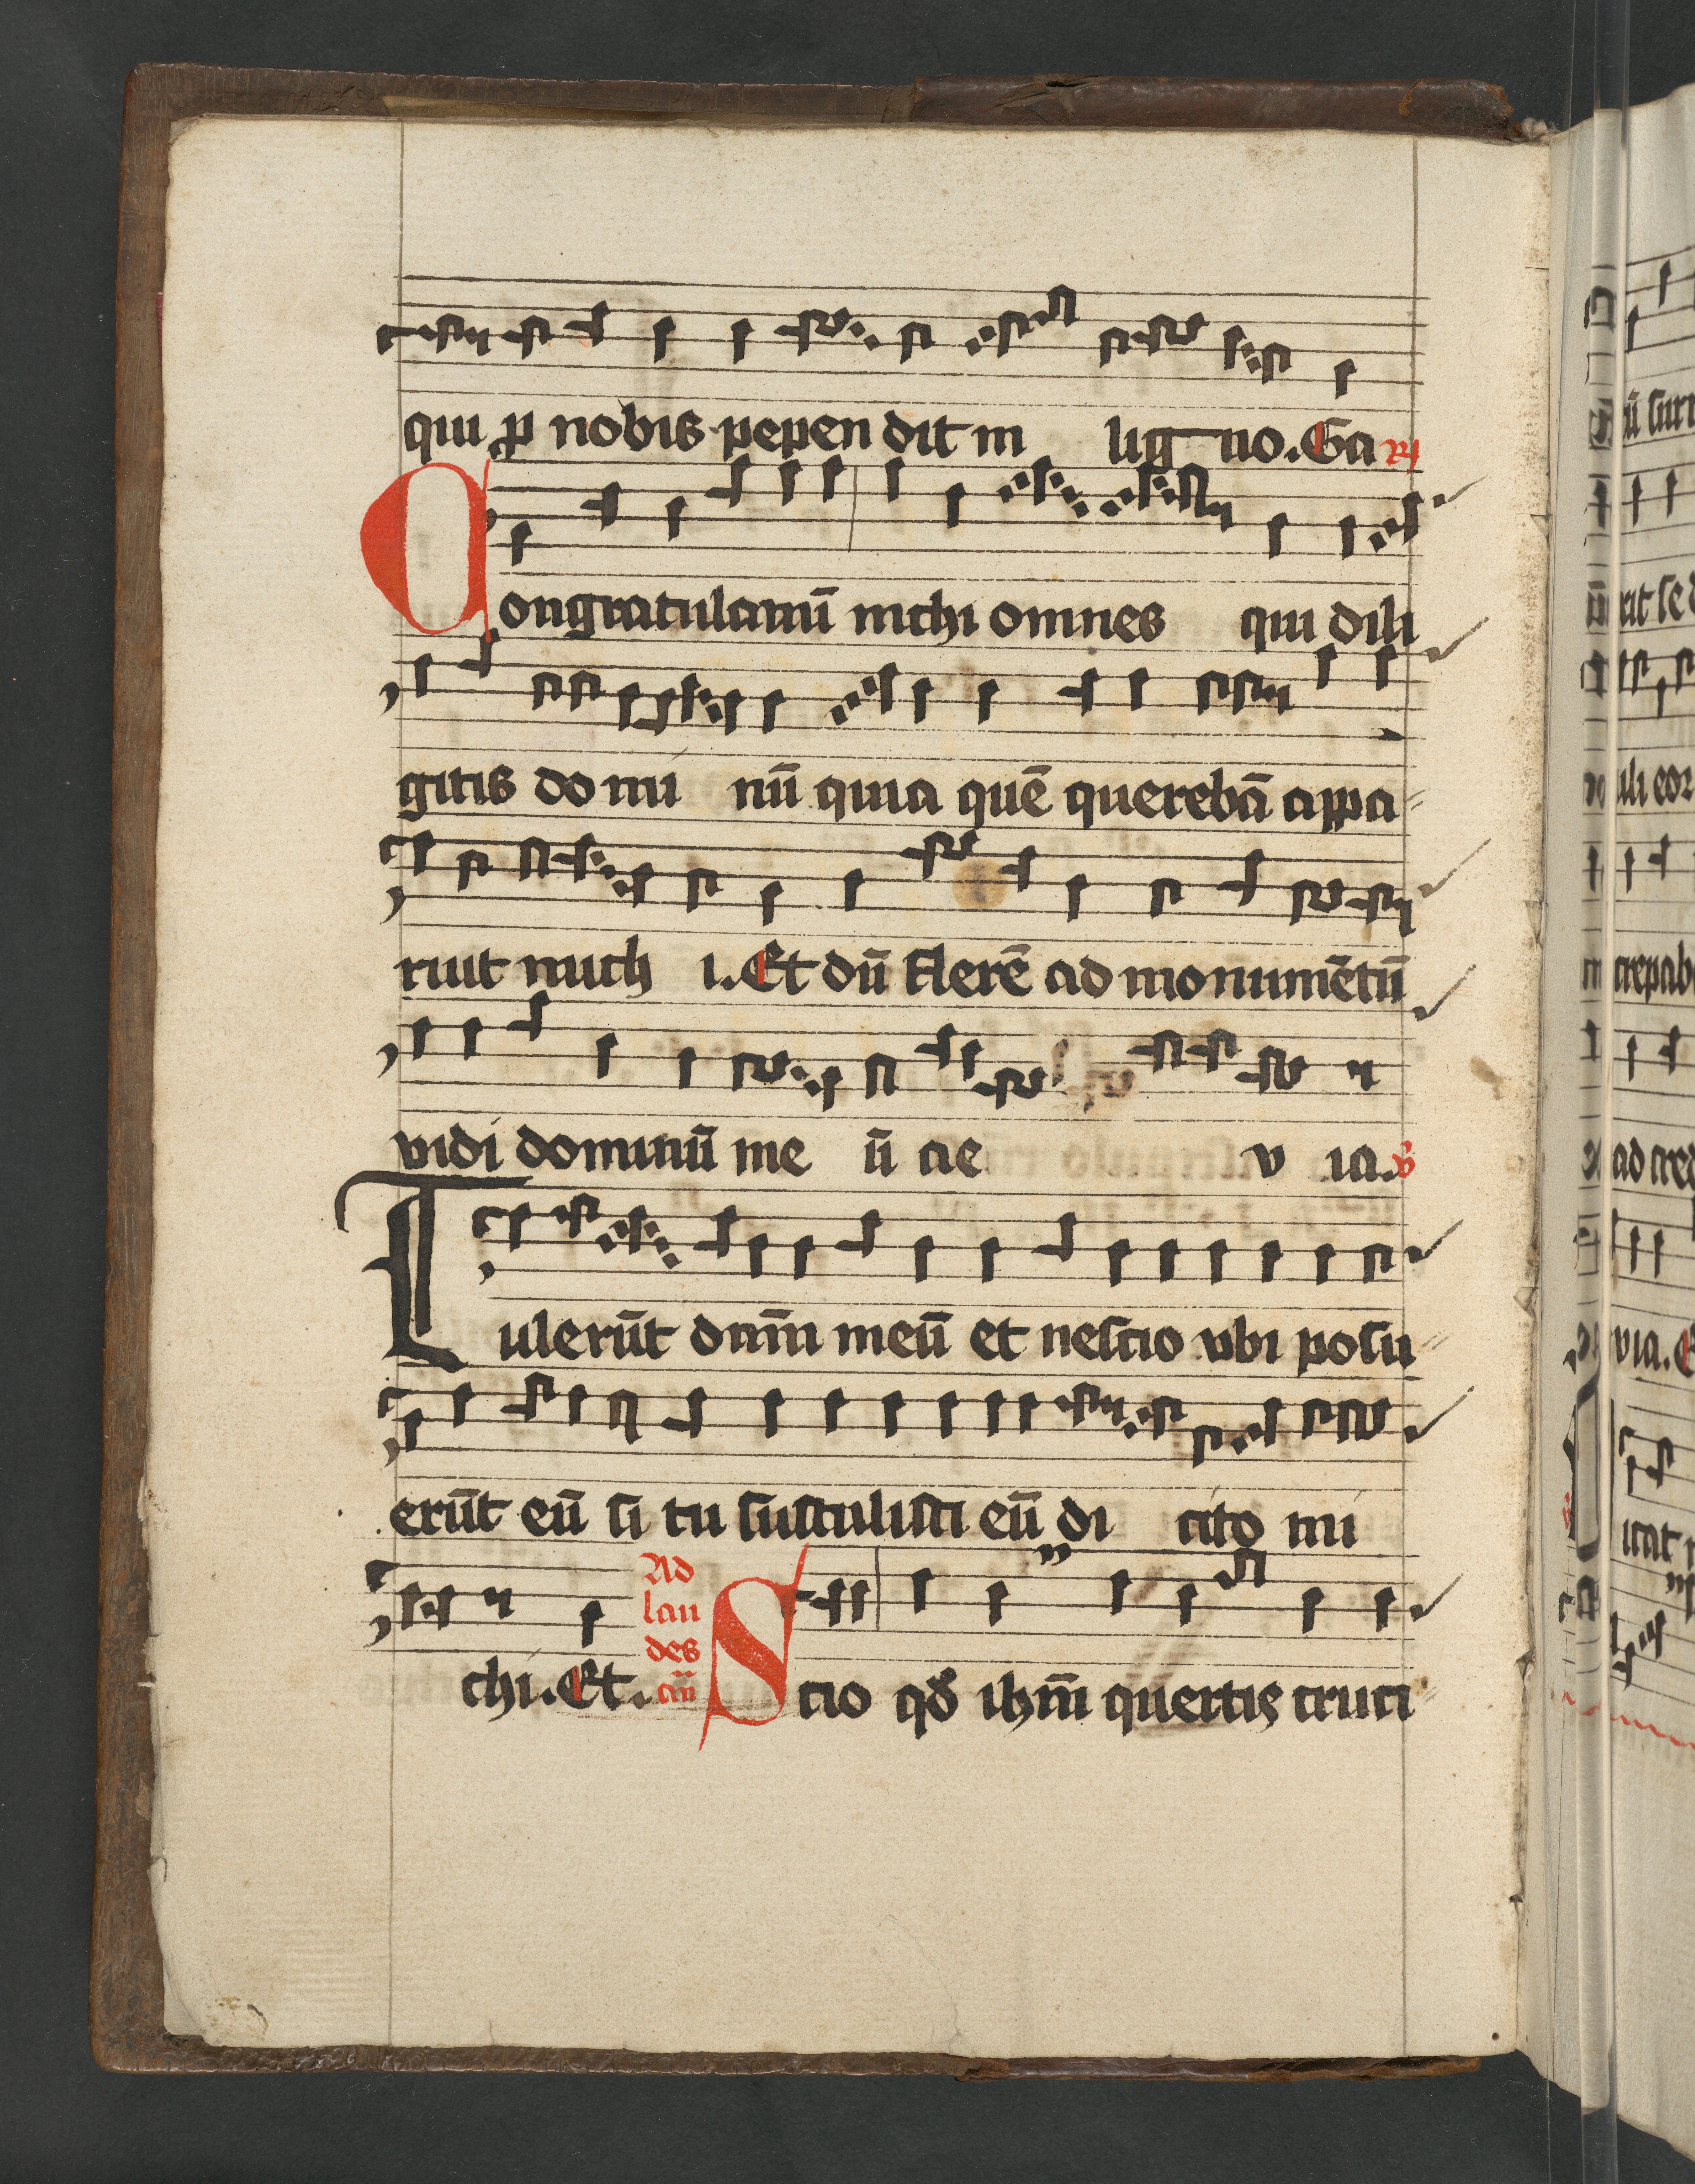 qui ꝓ nobis pepen dit in lig no. Ga ℞
Congratulamī michi omnes qui dili
gitis do mi nū quia quē querebā appa
ruit mich i. Et dū flerē ad monumētū
vidi dominū me ū ae v ia. ℣
Tulerūt dn̄m meū et nescio vbi posu
erūt eū si tu sustulisti eū di cito mi
chi. Et.
Ad
lau
des
an̄
Scio qd ihm̄ quertis cruci